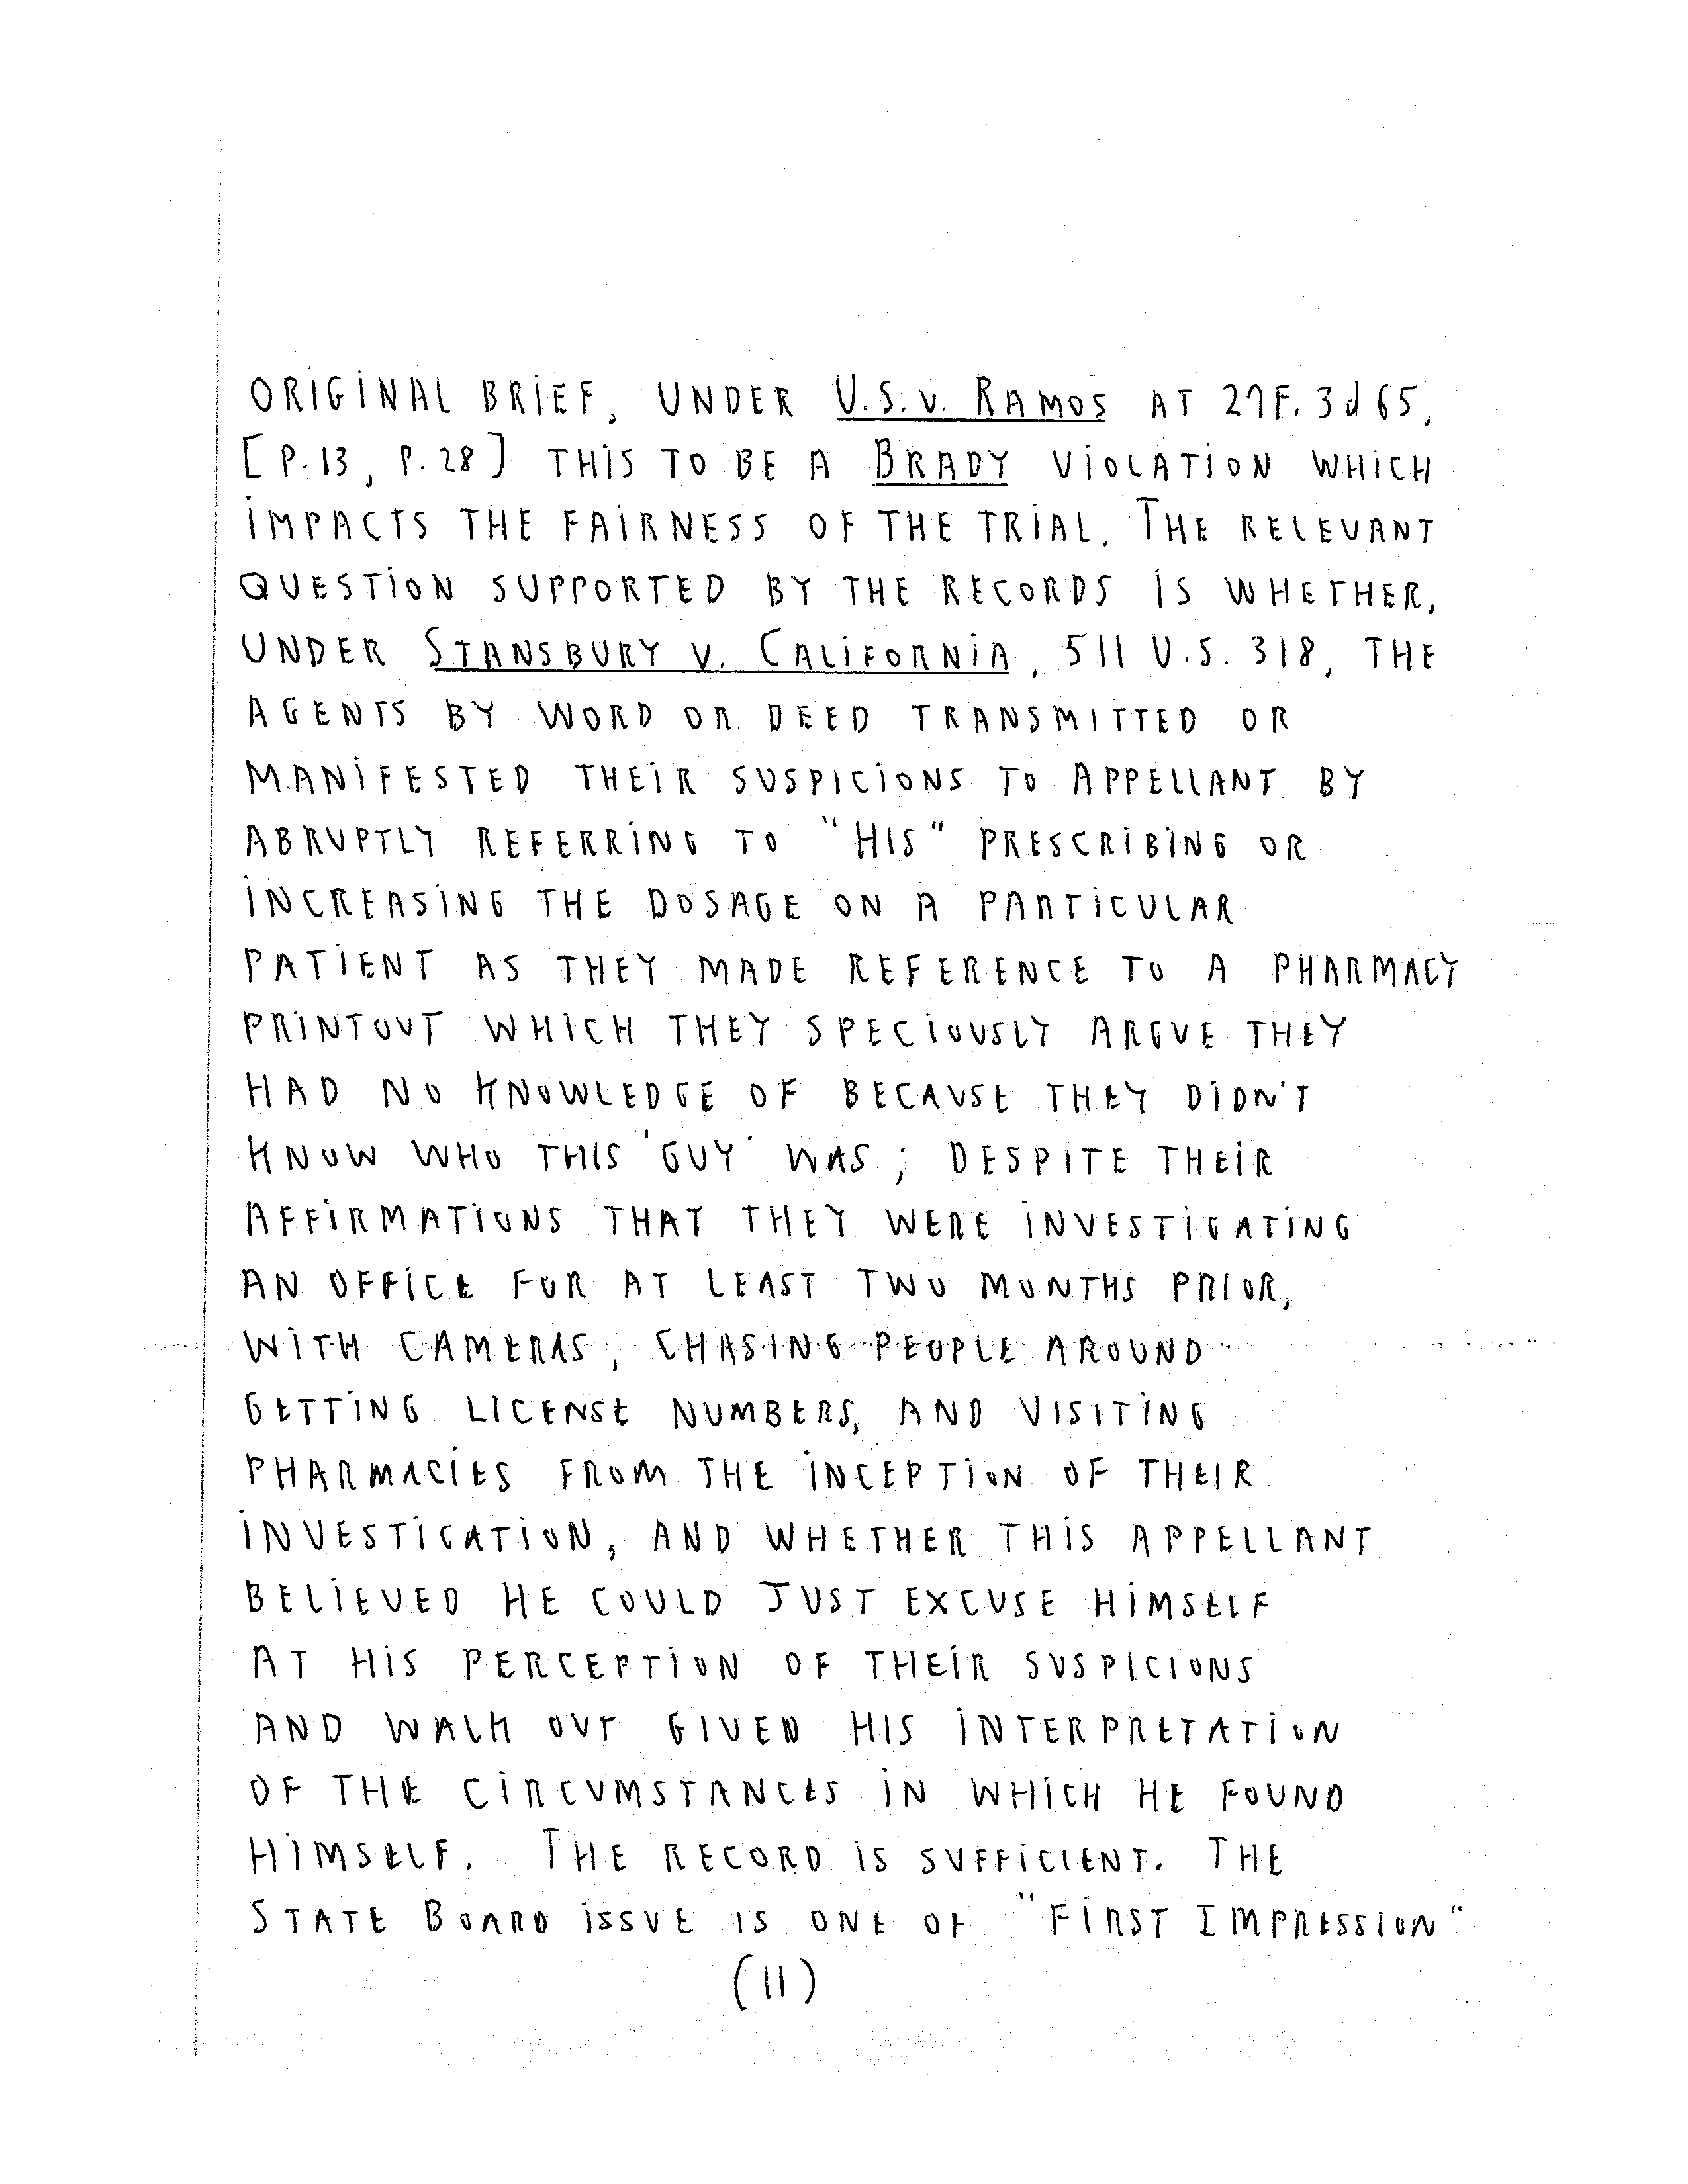 ORIGINAL BRIEF, UNDER U.S. v. RAMOS AT 27 F. 3d 65,
[P. 13, P. 28] THIS TO BE A BRADY VIOLATION WHICH
IMPACTS THE FAIRNESS OF THE TRIAL. THE RELEVANT
QUESTION SUPPORTED BY THE RECORDS IS WHETHER,
UNDER STANSBURY V. CALIFORNIA, 511 U.S. 318, THE
AGENTS BY WORD OR DEED TRANSMITTED OR
MANIFESTED THEIR SUSPICIONS TO APPELLANT BY
ABRUPTLY REFERRING TO "HIS" PRESCRIBING OR
INCREASING THE DOSAGE ON A PARTICULAR
PATIENT AS THEY MADE REFERENCE TO A PHARMACY
PRINTOUT WHICH THEY SPECIOUSLY ARGUE THEY
HAD NO KNOWLEDGE OF BECAUSE THEY DIDN'T
KNOW WHO THIS 'GUY' WAS; DESPITE THEIR
AFFIRMATIONS THAT THEY WERE INVESTIGATING
AN OFFICE FOR AT LEAST TWO MONTHS PRIOR,
WITH CAMERAS, CHASING PEOPLE AROUND
GETTING LICENSE NUMBERS, AND VISITING
PHARMACIES FROM THE INCEPTION OF THEIR
INVESTIGATION, AND WHETHER THIS APPELLANT
BELIEVED HE COULD JUST EXCUSE HIMSELF
AT HIS PERCEPTION OF THEIR SUSPICIONS
AND WALK OUT GIVEN HIS INTERPRETATION
OF THE CIRCUMSTANCES IN WHICH HE FOUND
HIMSELF. THE RECORD IS SUFFICIENT. THE
STATE BOARD ISSUE IS ONE OF "FIRST IMPRESSION"
(11)